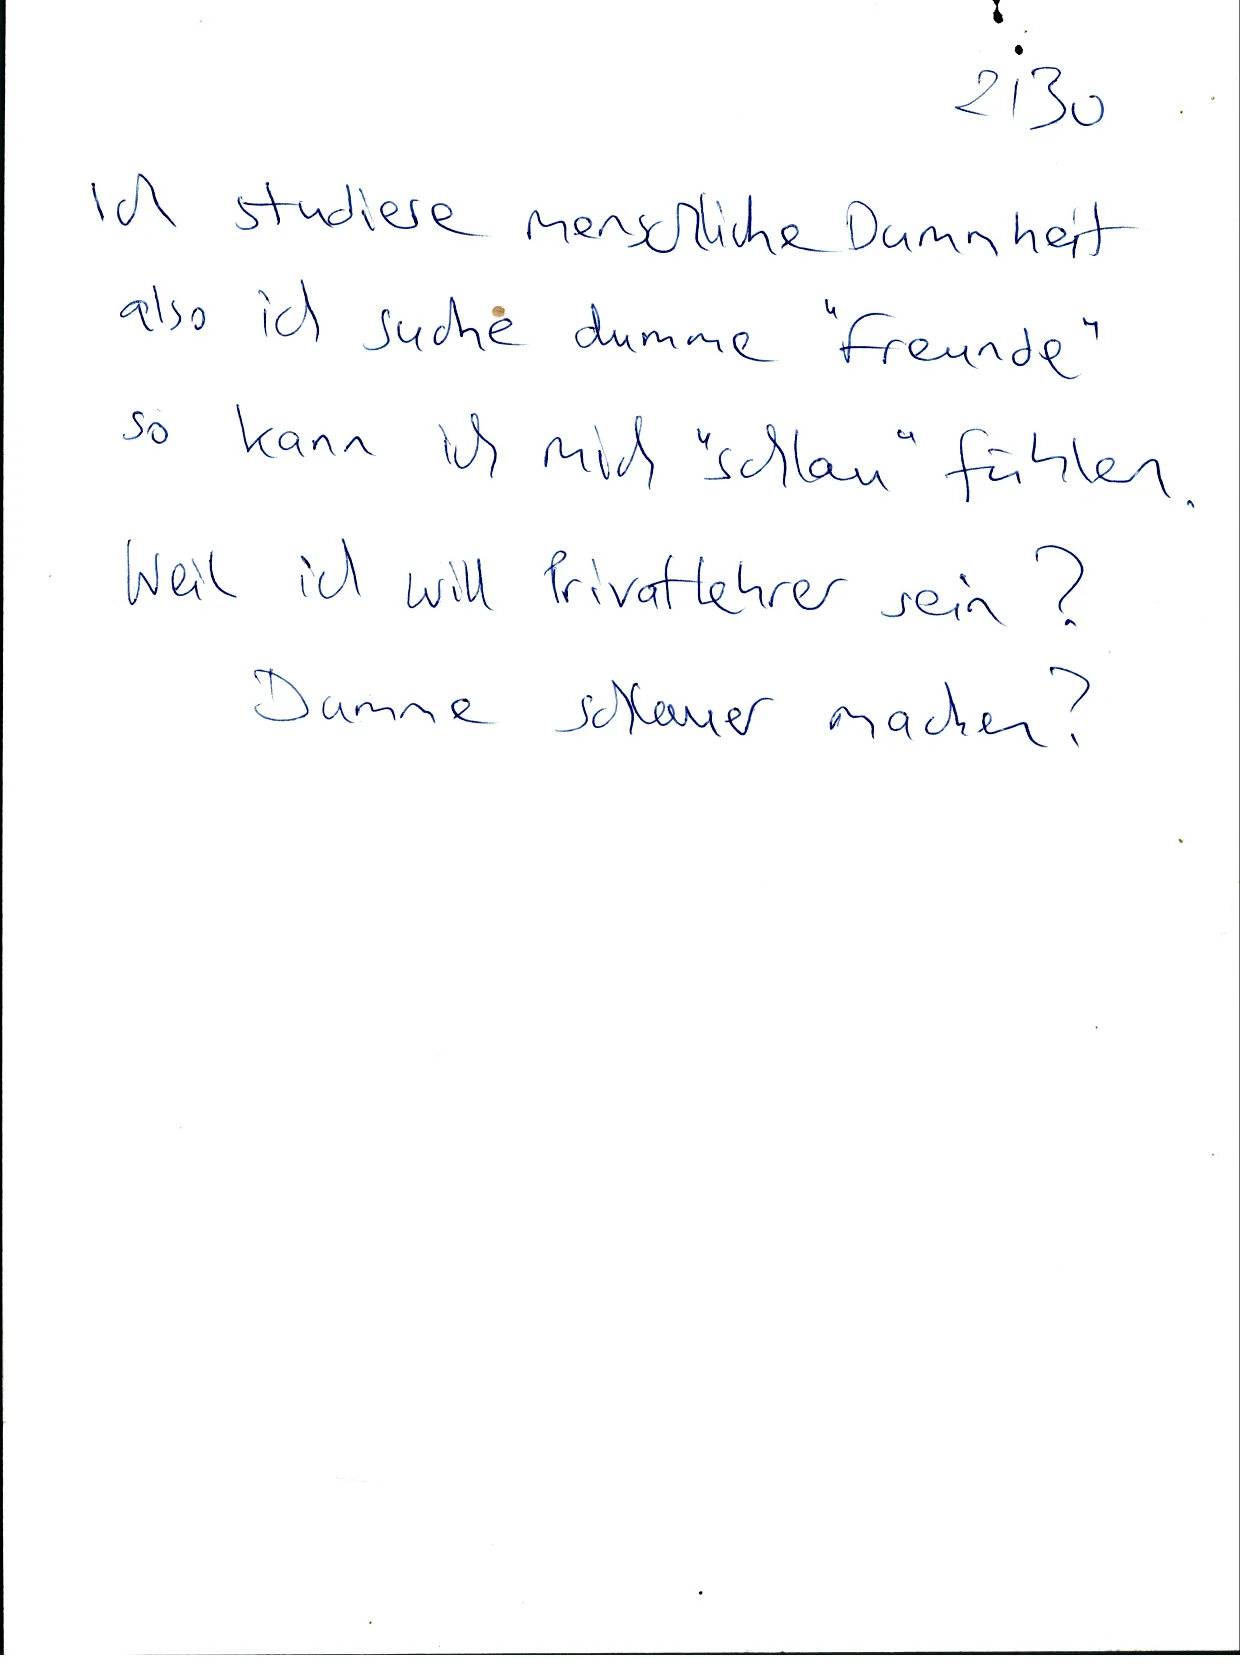 2130
ich studiere menschliche Dummheit
also ich suche dumme "Freunde"
so kann ich mich "schlau" fühlen.
Weil ich will Privatlehrer sein?
Dumme schlauer machen?